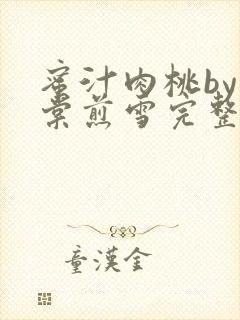 蜜汁肉桃by
棠煎雪完整
童漢金